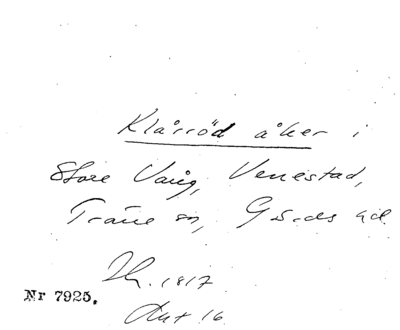 Klårröd åker i
Store Vång, Venestad,
Träne sn, Gärds hd
Lh. 1817
Nr 7925.
Akt 16